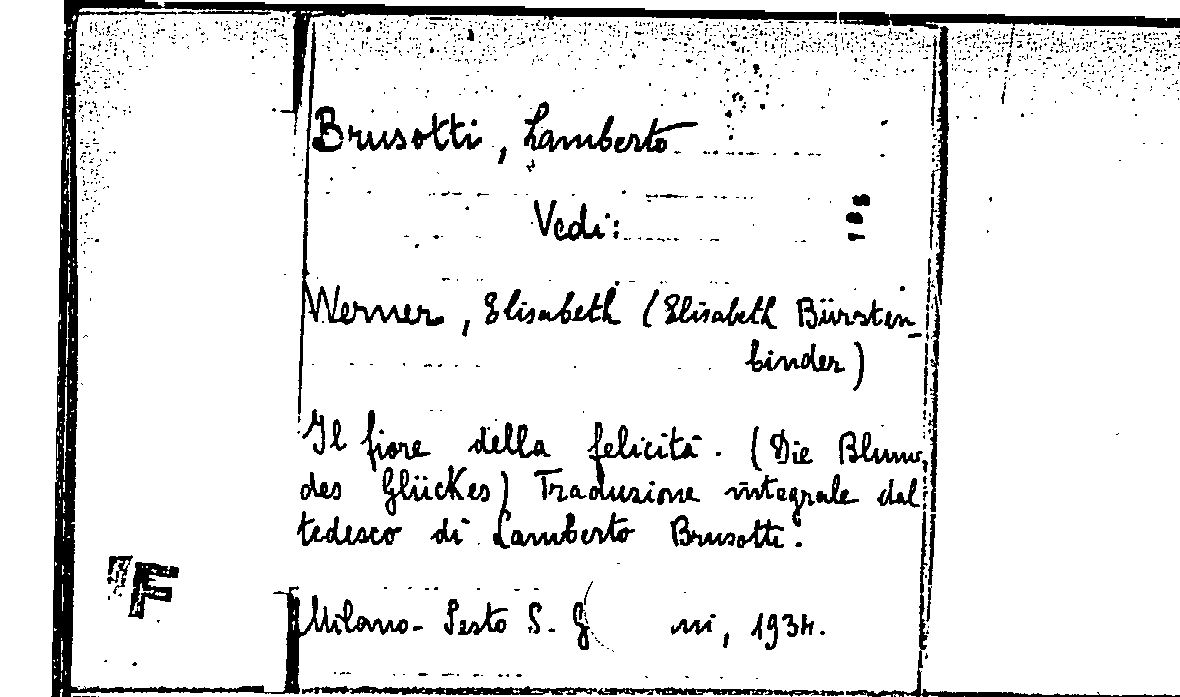 Brusotti, Lamberto
Vedi:
188
Werner, Elisabeth (Elisabeth Bürsten-
binder)
Il fiore della felicità. (Die Blume
des Glückes) Traduzione integrale dal
tedesco di Lamberto Brusotti.
F
Milano- Sesto S. G ni, 1934.